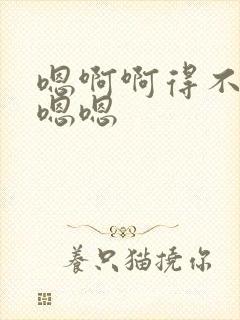 嗯啊啊得不
嗯嗯
养只猫挠你